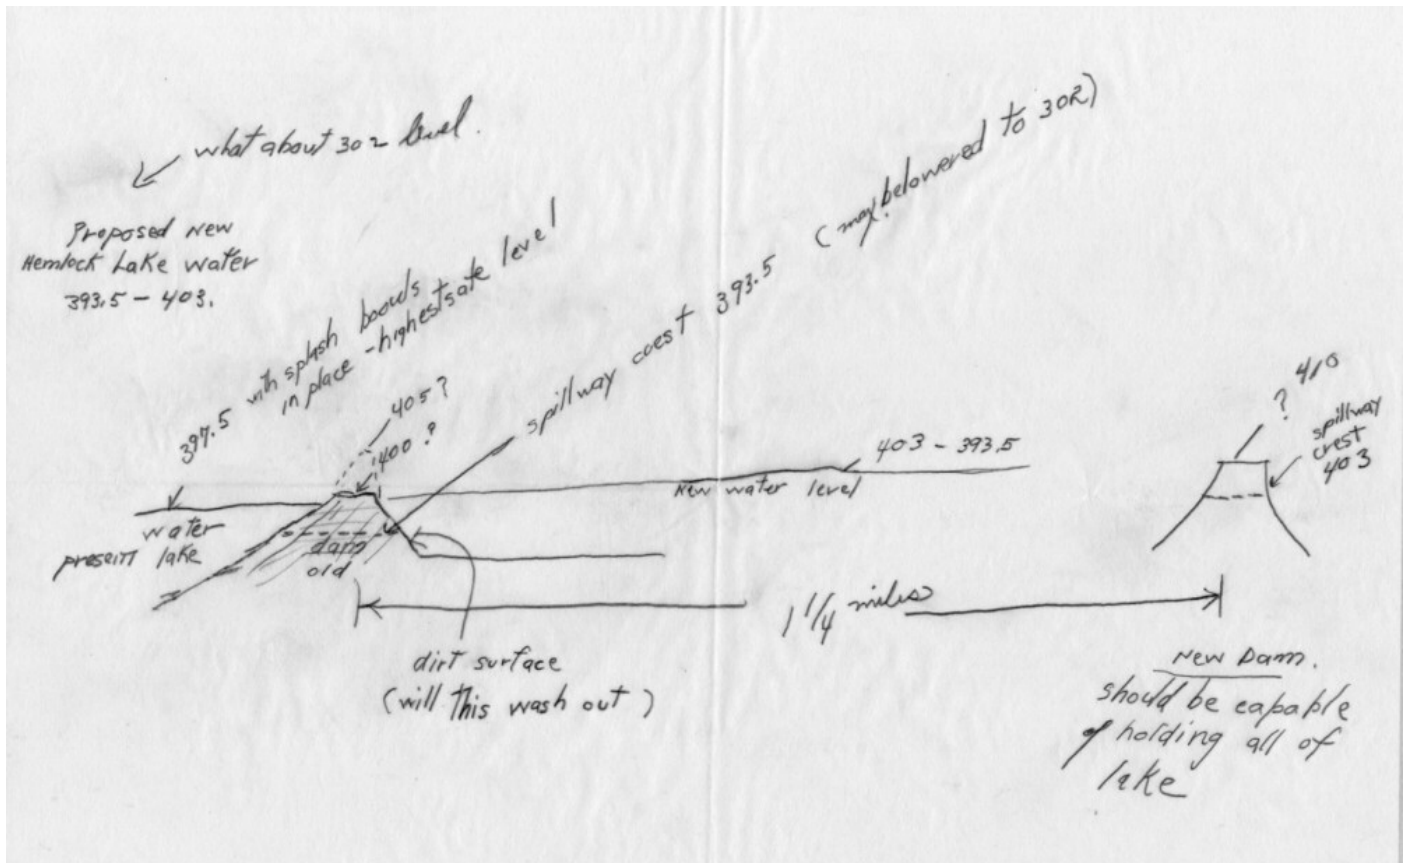 what about 302 level.
Proposed New
Hemlock Lake water
393.5 - 403.
397.5 with splash boards
in place - highest safe level
405?
400?
spillway crest 393.5 (may be lowered to 302)
403 - 393.5
New water level
? 410
spillway
crest
403
water
present lake
dam
old
1 1/4 miles
dirt surface
(will this wash out)
New Dam.
should be capable
of holding all of
lake